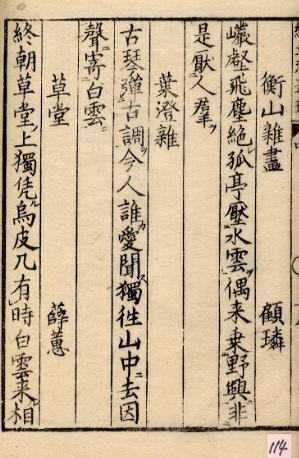 衡山雑畫　顧璘
巖壑飛塵絶孤亭壓水雲偶来乗野興非
是厭人羣
葉澄雑
古琴彈古調今人誰愛聞獨徃山中去因
聲寄白雲
草堂　薛蕙
終朝草堂上獨凭烏皮几有時白雲来相
114